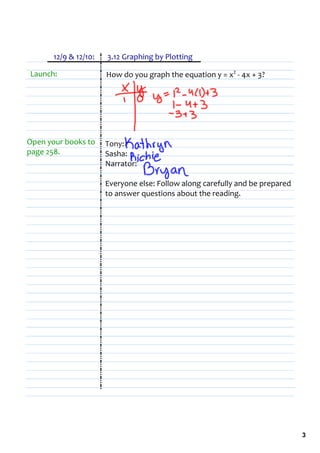 12/9 & 12/10: 3.12 Graphing by Plotting
Launch: How do you graph the equation y = x² - 4x + 3?
x y
1 0 y = 1² - 4(1) + 3
1 - 4 + 3
-3 + 3
Open your books to page 258.
Tony: Kathryn
Sasha: Richie
Narrator: Bryan
Everyone else: Follow along carefully and be prepared
to answer questions about the reading.
3